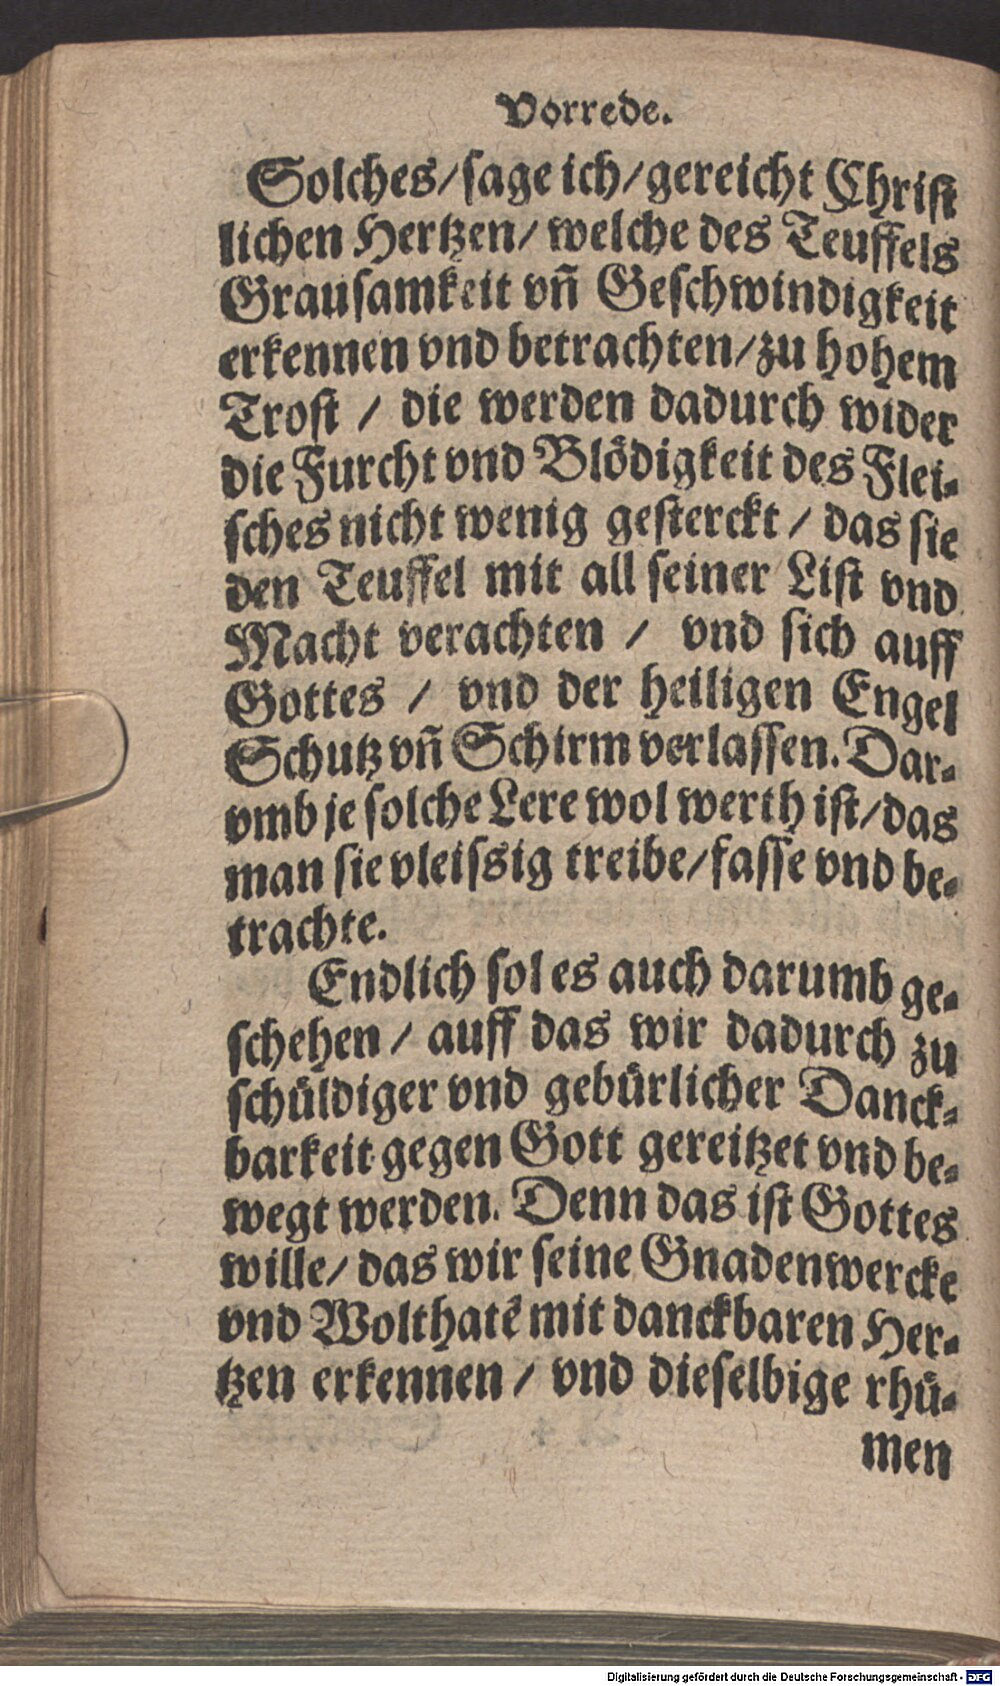 Vorrede.
Solches/sage ich/gereicht Christ
lichen Hertzen/ welche des Teuffels
Grausamkeit vn̄ Geschwindigkeit
erkennen vnd betrachten/zu hohem
Trost / die werden dadurch wider
die Furcht vnd Blödigkeit des Flei-
sches nicht wenig gesterckt / das sie
den Teuffel mit all seiner List vnd
Macht verachten / vnd sich auff
Gottes / vnd der heiligen Engel
Schutz vn̄ Schirm verlassen. Dar-
vmb je solche Lere wol werth ist/das
man sie vleissig treibe/fasse vnd be-
trachte.
Endlich sol es auch darumb ge-
schehen / auff das wir dadurch zu
schüldiger vnd gebürlicher Danck-
barkeit gegen Gott gereitzet vnd be-
wegt werden. Denn das ist Gottes
wille/ das wir seine Gnadenwercke
vnd Wolthatē mit danckbaren Her-
tzen erkennen / vnd dieselbige rhü-
men
Digitalisierung gefördert durch die Deutsche Forschungsgemeinschaft - DFG